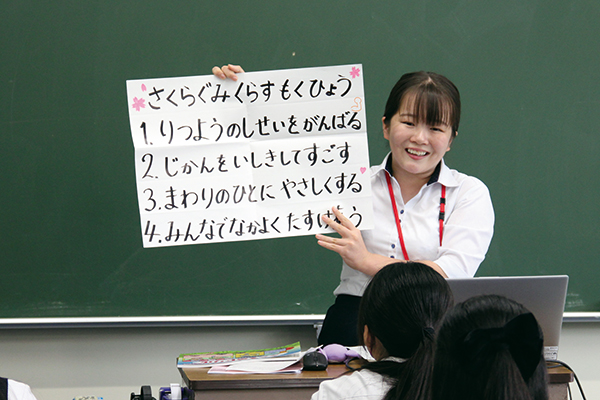 さくらぐみくらすもくひょう
1. りつようのしせいをがんばる
2. じかんをいしきしてすごす
3. まわりのひとにやさしくする
4. みんなでなかよくたすけあう